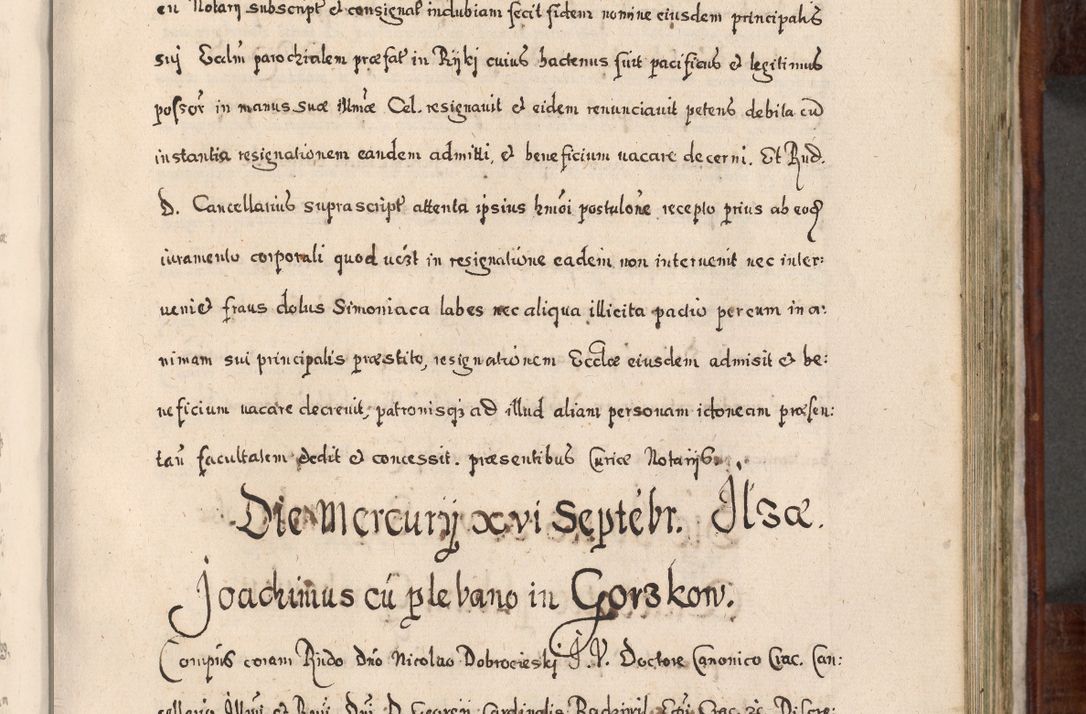 en Notarij subscript et consignat indubiam fecit fidem nomine eiusdem principalis
suj Eccliam parochialem præfat in Rijkj cuius hactenus fuit pacificus et legitimus
possor in manus suæ Illmæ Cel. resignavit et eidem renunciavit petens debita cū
instantia resignationem eandem admitti, et beneficium uacare decerni. Et Rnd.
D. Cancellarius suprascript attenta ipsius hmōi postulone recepto prius ab eod
iuramento corporali quod uczt in resignatione eadem non interuenit nec inter:
veniet fraus dolus Simoniaca labes nec aliqua illicita pactio per eum in a:
nimam sui principalis præstito, resignationem Ecclæ eiusdem admisit et be:
neficium uacare decrevit, patronisqz ad illud aliam personam idoneam præsen:
tañ facultatem dedit et concessit. præsentibus Curiæ Notarijs.
Die Mercurij xvi Septēbr. Ilzæ.
Joachimus cū plebano in Gorzkow.
Compūs coram Rndo Dno Nicolao Dobrocieskj J. V. Doctore Canonico Crac. Can:
cellario Illmi et Rmi Dni D. Georgij Cardinalis Radziwil Epī Crac. zc Discre: